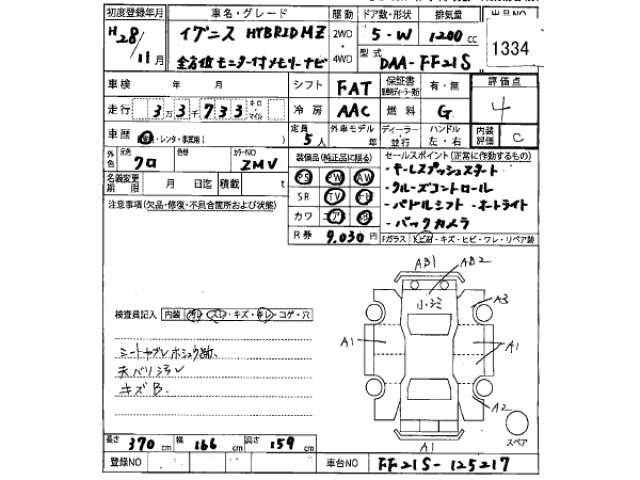 初度登録年月 車名・グレード 駆動 ドア数・形状 排気量 出品NO
H28/11月 イグニス HYBRID MZ 2WD 5-W 1200cc 1334
全方位モニター付メモリーナビ 4WD 型式 DAA-FF21S
車検 年 月 シフト FAT 保証書 有・無 評価点
走行 3万3千733 キロ・マイル 冷房 AAC 燃料 G 4
車歴 ・レンタ・事業用( ) 定員 5人 外車モデル 年 ディーラー・並行 ハンドル 左・右 内装評価 C
外色 元色 クロ 色替 カラーNO ZMV 装備品(純正品に限る) セールスポイント(正常に作動するもの)
名義変更期限 月 日迄 積載 t PS PW AW ・キーレスプッシュスタート
注意事項(欠品・修復・不具合箇所および状態) SR TV ナビ ・クルーズコントロール
カワ エアB ・パドルシフト ・オートライト
R券 9.030円 ・バックカメラ
Fガラス ・キズ・ヒビ・ワレ・リペア跡
AB1 AB2
小・シミ A3
検査員記入 内装 汚レ・スレ・キズ・キレ・コゲ・穴
A1 A1
シートヤブレホシュウ跡
天バリ汚レ
キズB.
A2
スペア
A1
長さ 370cm 幅 166cm 高さ 159cm
登録NO 車台NO FF21S-125217